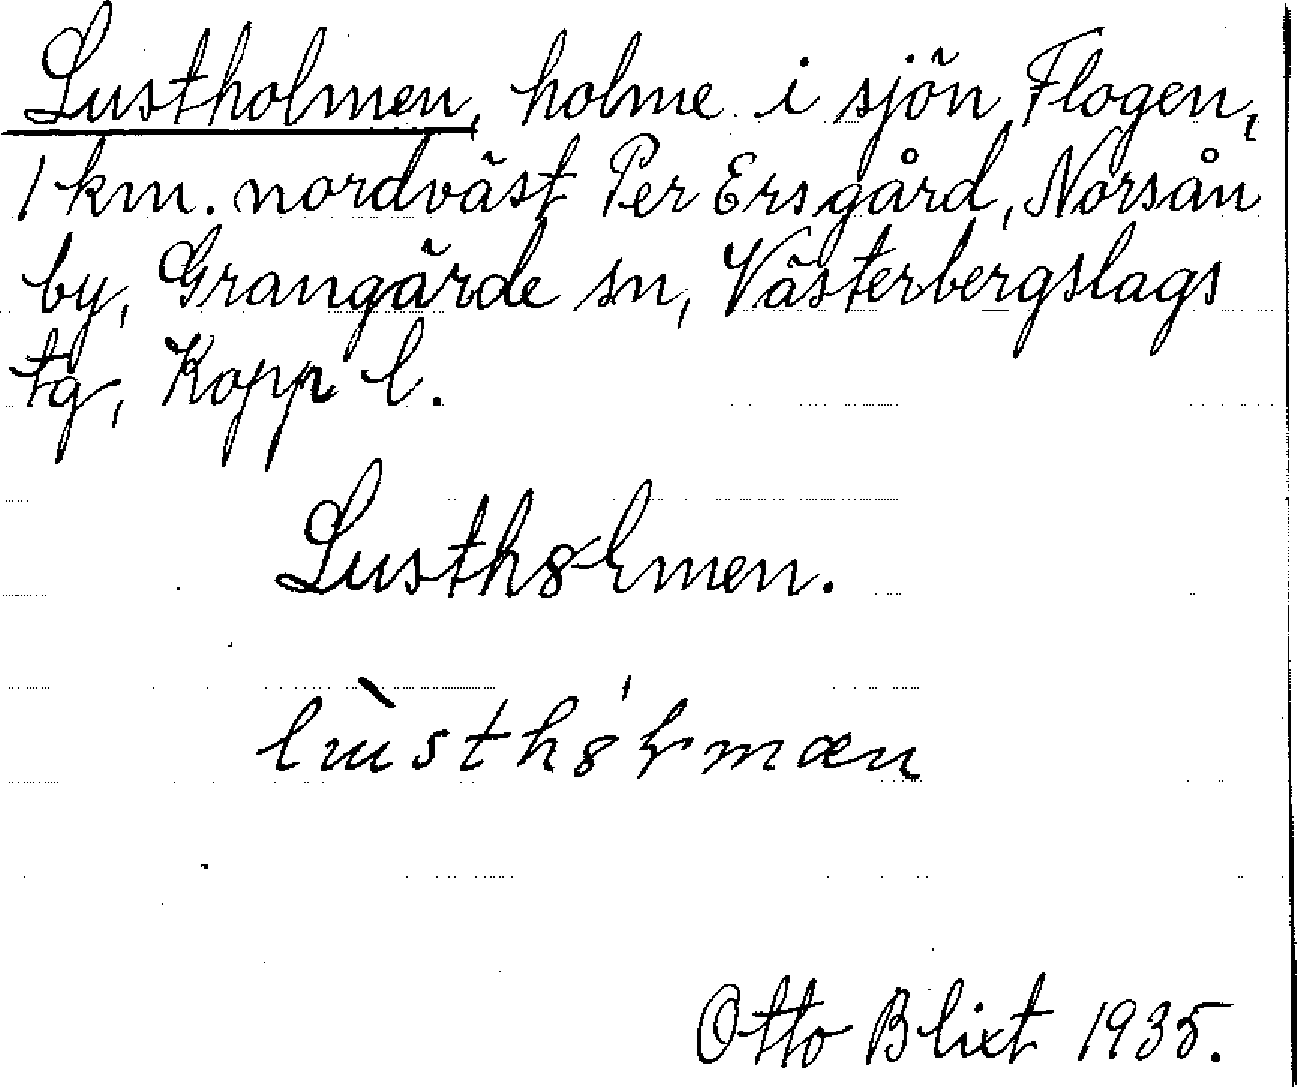 Lustholmen, holme i sjön Flogen,
1 km. nordväst Per Ersgård, Norsån
by, Grangärde sn, Västerbergslags
tg, Kopp l.
Lusthȣlmen.
Otto Blixt 1935.